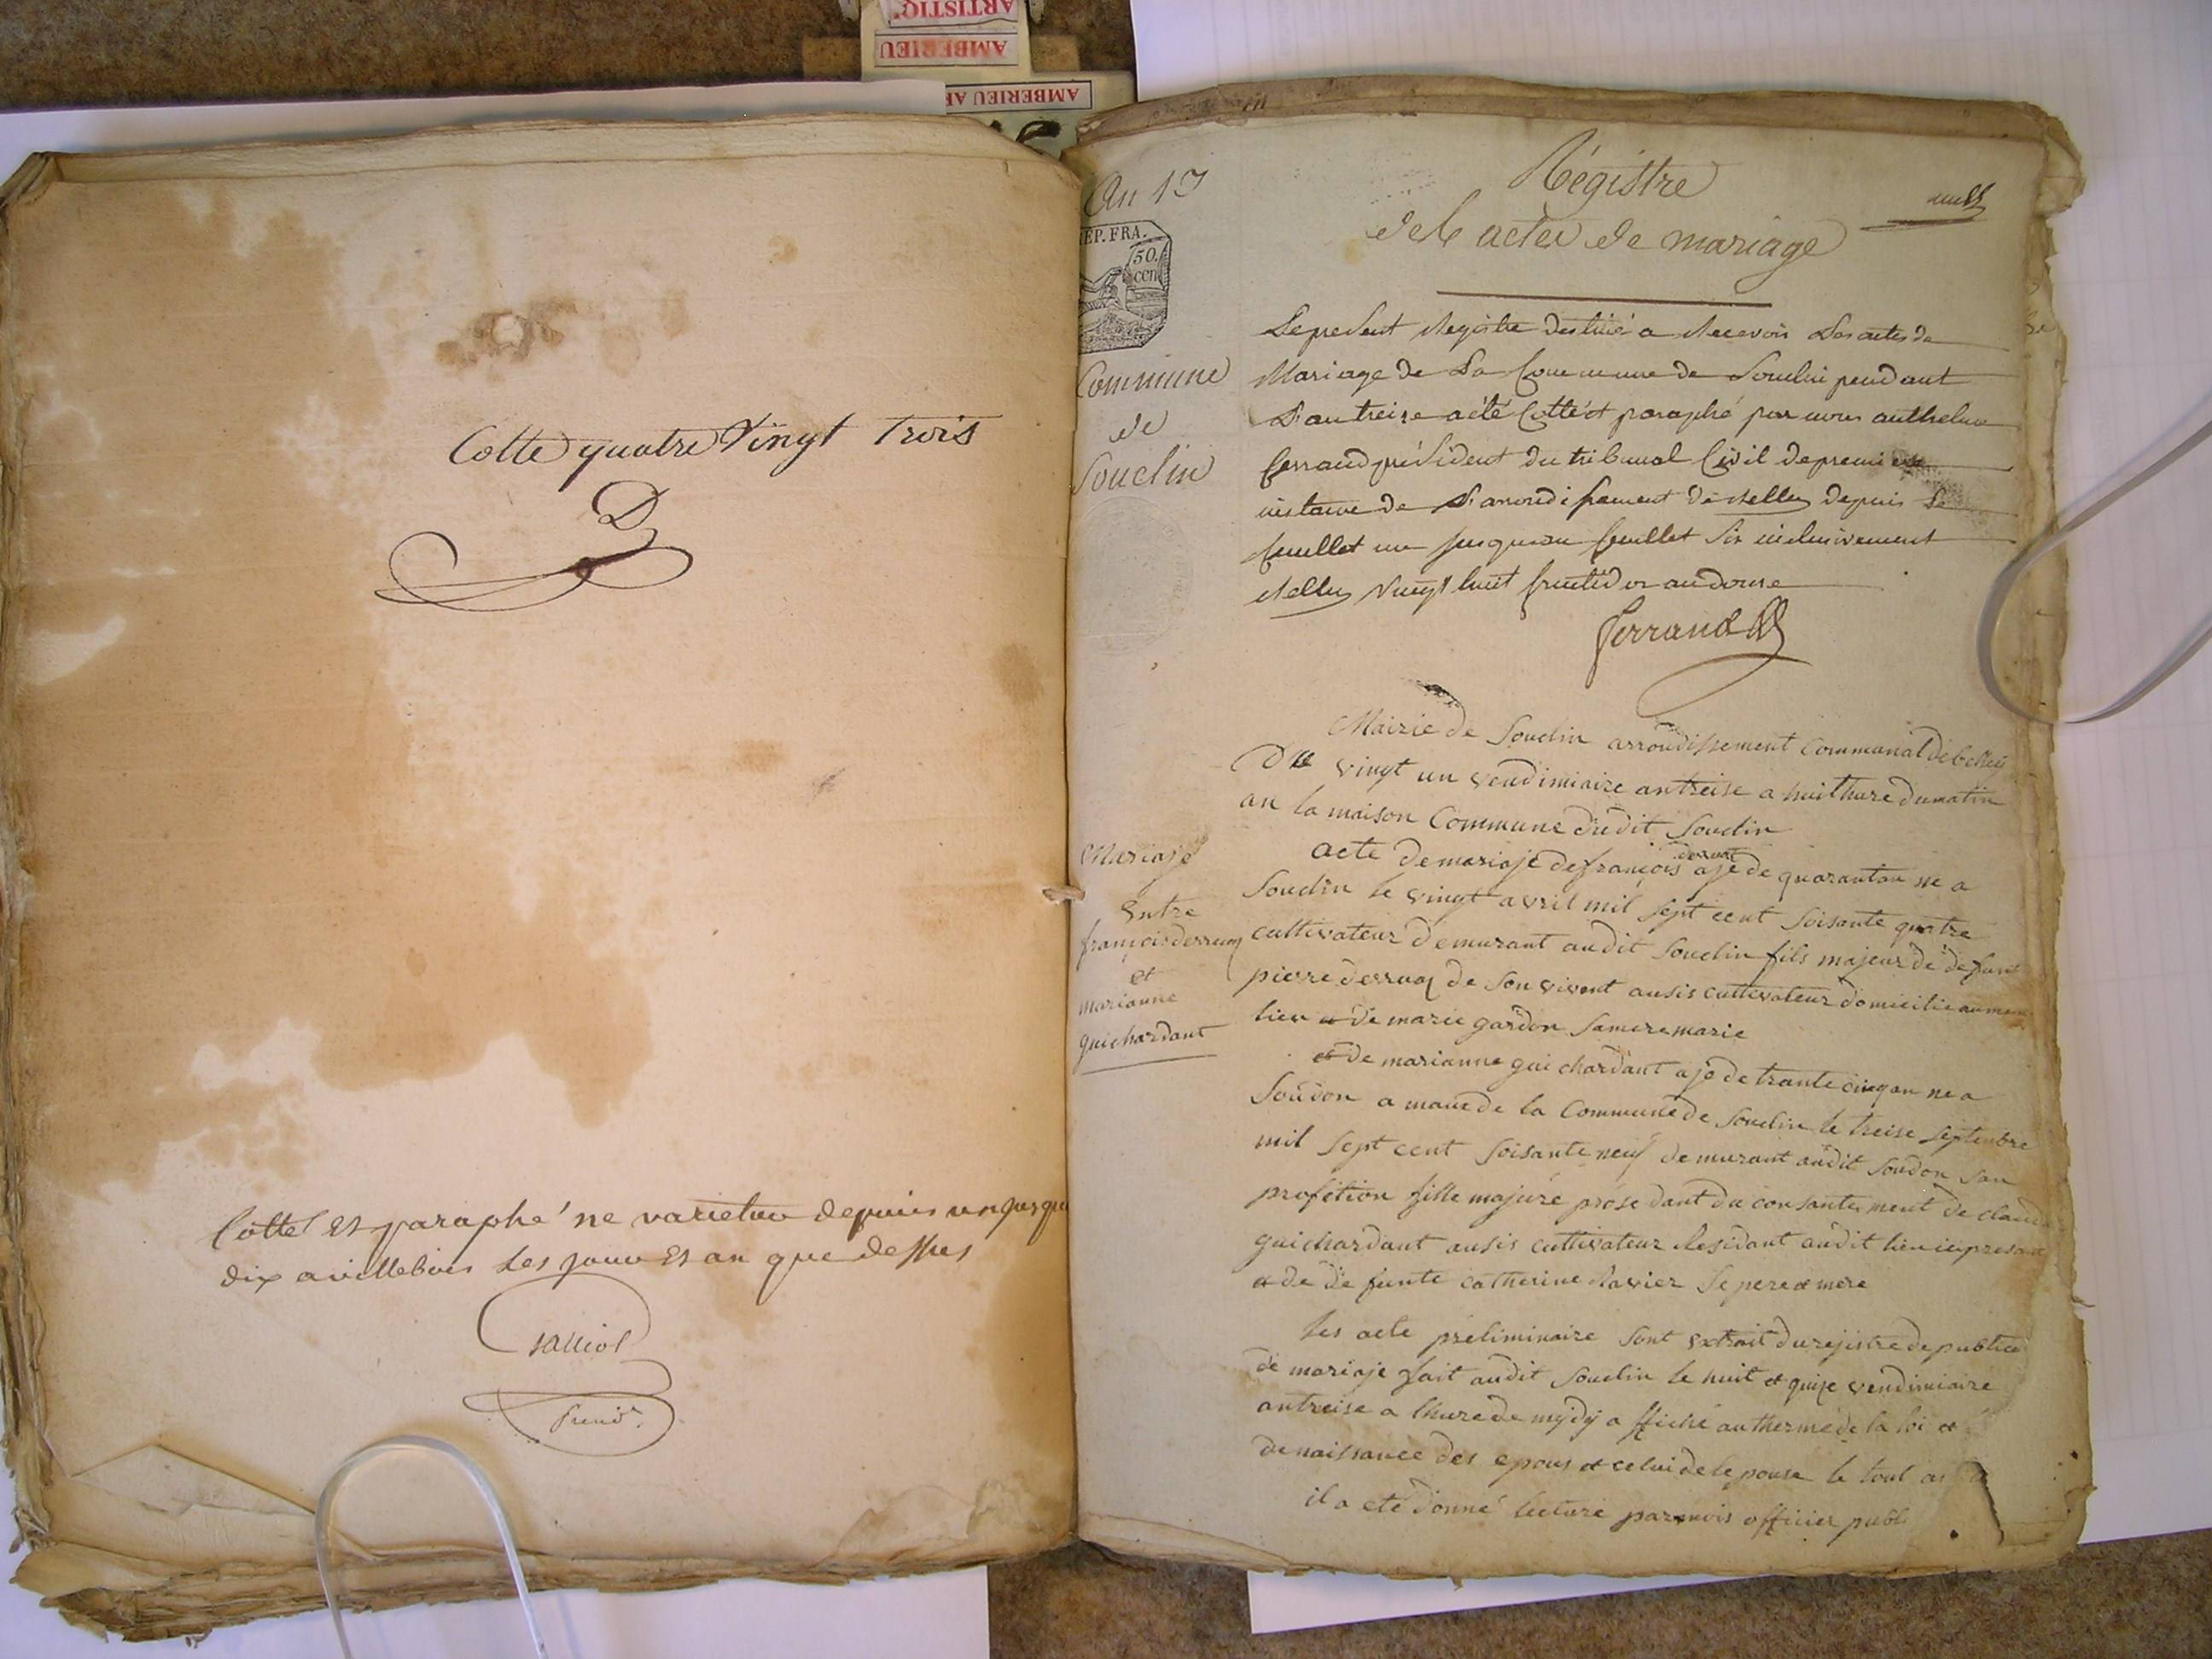 ARTISTIQ
AMBERIEU
AMBERIEU AR
Cotte quatre Vingt Trois
Cottes Et paraphé ne varietur depuis un jusqu
dix a villebois les jour Et an que dessus
An 13
REP. FRA.
50.
cen
Commune
de
Souclin
Régistre
des actes de mariage
Le present Registre destiné a Recevoir Les actes de
Mariage de La Commune de Souclin pendant
L'an treize a été Cotté et paraphé par nous anthelme
ferrand président du tribunal Civil de premiere
instance de L'arrondissement de Belley depuis Le
feuillet un jusqu'au feuillet Six inclusivement
Belley Vingt huit fructidor an douze
ferrand
Mairie de Souclin arrondissement Communal de belley
Du vingt un vendimiaire an treise a huit hure du matin
an la maison Commune dudit Souclin
Mariaje
Entre
françois derruaz
et
marianne
guichardant
acte de mariaje de françois derruaz aje de quarantan ne a
Souclin le vingt avril mil sept cent soisante quatre
cultivateur demurant audit Souclin fils majeur de defunt
pierre derruaz de son vivent ausis cultivateur domicilie au meme
lieu et de marie gardon sa mere marie
et de marianne guichardant aje de trante cinq an ne a
Soudon a maue de la Commune de Souclin le treise septenbre
mil sept cent soisante neuf demurant audit Soudon san
profétion fille majure prosedant du consantement de claude
guichardant ausis cultivateur Residant audit lieu ici present
et de defunte catherine Ravier se pere et mere
les acte préliminaire sont extrait du rejistre de publica
de mariaje fait audit Souclin le huit et quise vendimiaire
an treise a lhure de mydÿ affiché au therme de la loi et
de naissance des epous et celui de lepouse le tout
il a eté donné lecture par mois officier publ